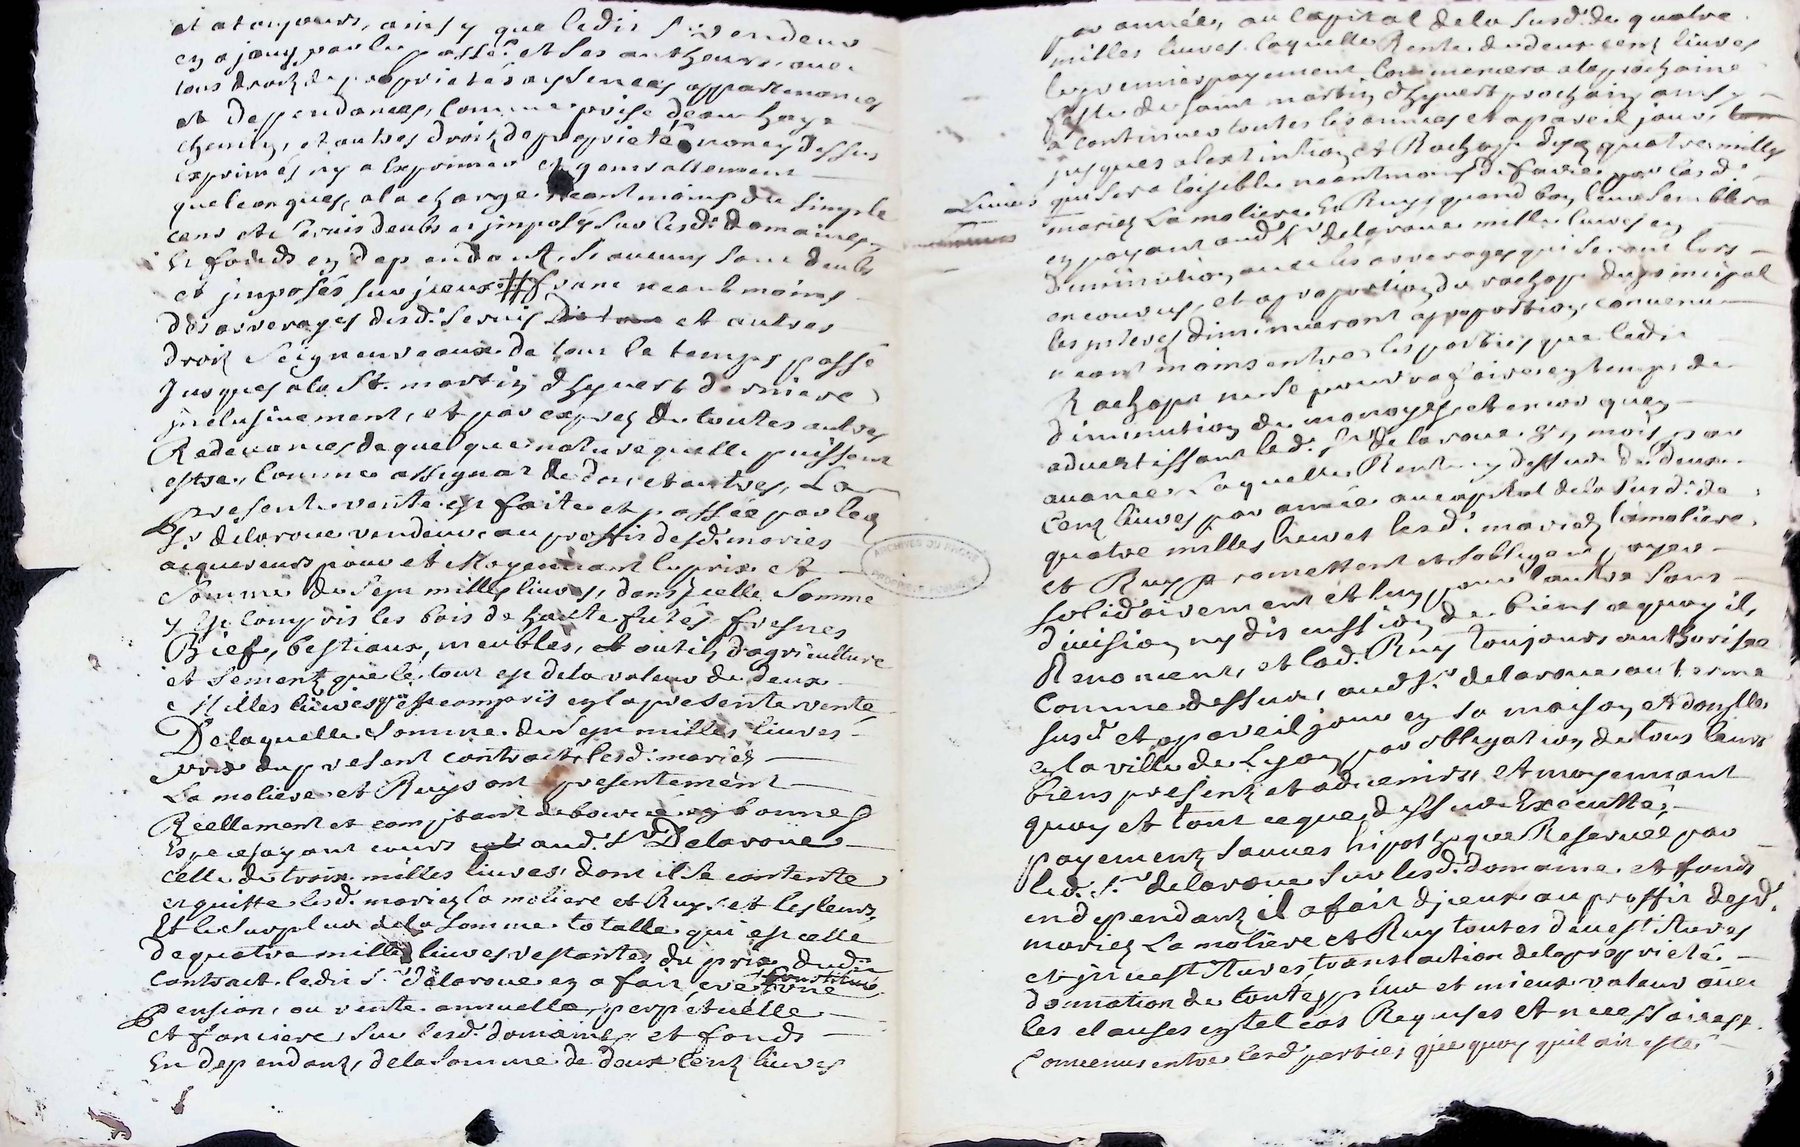 et atousjours, ainsy que ledit Sr. vendeur
en a jouy par le passé, et ses autheurs, avec
tous droitz de proprietés aysences appartenances
et deppendances, comme prise deau haye
chemins, et autres droitz de proprieté non cy dessus
exprimés ny a exprimer et generallement
quelconques, a la charge neantmoins du simple
cens et servis deubs et imposés sur lesd. domaines
et fonds en dependant, si aucuns sont deubs
et imposés sur iceux franc neantmoins
des arrerages desd. servis et autres
droitz seigneureaux de tout le temps passé
Jusques a la St. martin dhyvert derniere
inclusivement, et par exprez de toutes autres
Redevances de quelque nature quelle puissent
estre, comme assignat de dot, et autres, La
presente vente est faite et passée par led.
Sr. delaroue vendeur, au proffit desd. mariés
acquereurs pour et Moyennant le prix et
somme de sept mille livres, dans jcelle somme
y est compris les bois de haute futés fresnes
Bief, bestiaux, meubles, et outils d'agriculture
et semens que le tout est de la valeur de deux
Milles livres est compris en la presente vente,
De laquelle somme de sept milles livres
prix du present contract, lesd. mariés
La moliere et Ruys ont presentement
Reellement et comptant deboursé en bonnes
Especes ayant cours aud. Sr. Delaroüe
celle de trois milles livres, dont il se contente
en quitte lesd. mariez la moliere et Ruys, et les leurs,
Et le surplus de la somme totalle qui est celle
de quatre mille livres restante du prix dud.
contract ledit Sr. delaroue en a fait, créé constitué une
Pension, ou rente annuelle, perpetuelle
et fonciere, sur lesd. domaines et fonds
En dependant, de la somme de deux cent livres
par années, au capital de la susd. de quatre
milles livres laquelle Rente de deux cent livres
le premier payement commencera a la prochaine
feste de Saint martin dhyvert prochain, ainsy
a continuer toutes les années et a pareil jour,
jusques a lextintion et Rachapt desd. quatre milles
Livres qui sera loisible neantmoins de faire par lesd.
mariez La moliere et Ruys, quand bon leur semblera
en payant aud. Sr. delaroue mille livres en
diminution, avec les arrerages qui seront lors
encourus, et a proportion du rachapt du principal
les interes diminueront a proportion, convenu
neantmoins entre les parties que ledit
Rachapt ne se pourra faire en temps de
diminution de monoyes, et encor quen
advertissant led. Sr. de la roue six mois par
avance, Laquelle Rente cy dessus de deux
Cent livres par année au capital de la susd. de
quatre milles livres lesd. mariez lamoliere,
et Ruys promettent et sobligent payer
solidairement et lun pour lautre sans
division ny discussion de biens a quoy ils
Renoncent, et lad. Ruys toujours authorisée
comme dessus, aud. Sr. delaroue au terme
susd. et a pareil jour en sa maison et domicille
en la ville de Lyon, par obligation de tous leurs
biens presentz et advenirs, et moyennant
quoy et tout ce que dessus Executté,
payement sauves hipotheque Reservée par
led. Sr. delaroue sur lesd. domaine et fonds
en dependantz il a fait djceux au proffit desd.
mariez La moliere et Ruys toutes devestitures
et jnvestitures translation de la proprieté
donnation de toutes plus et mieux valeur avec
les clauses en tel cas Requises et necessaires
Convenus entre lesd. parties que quoy quil ait esté
ARCHIVES DU RHONE